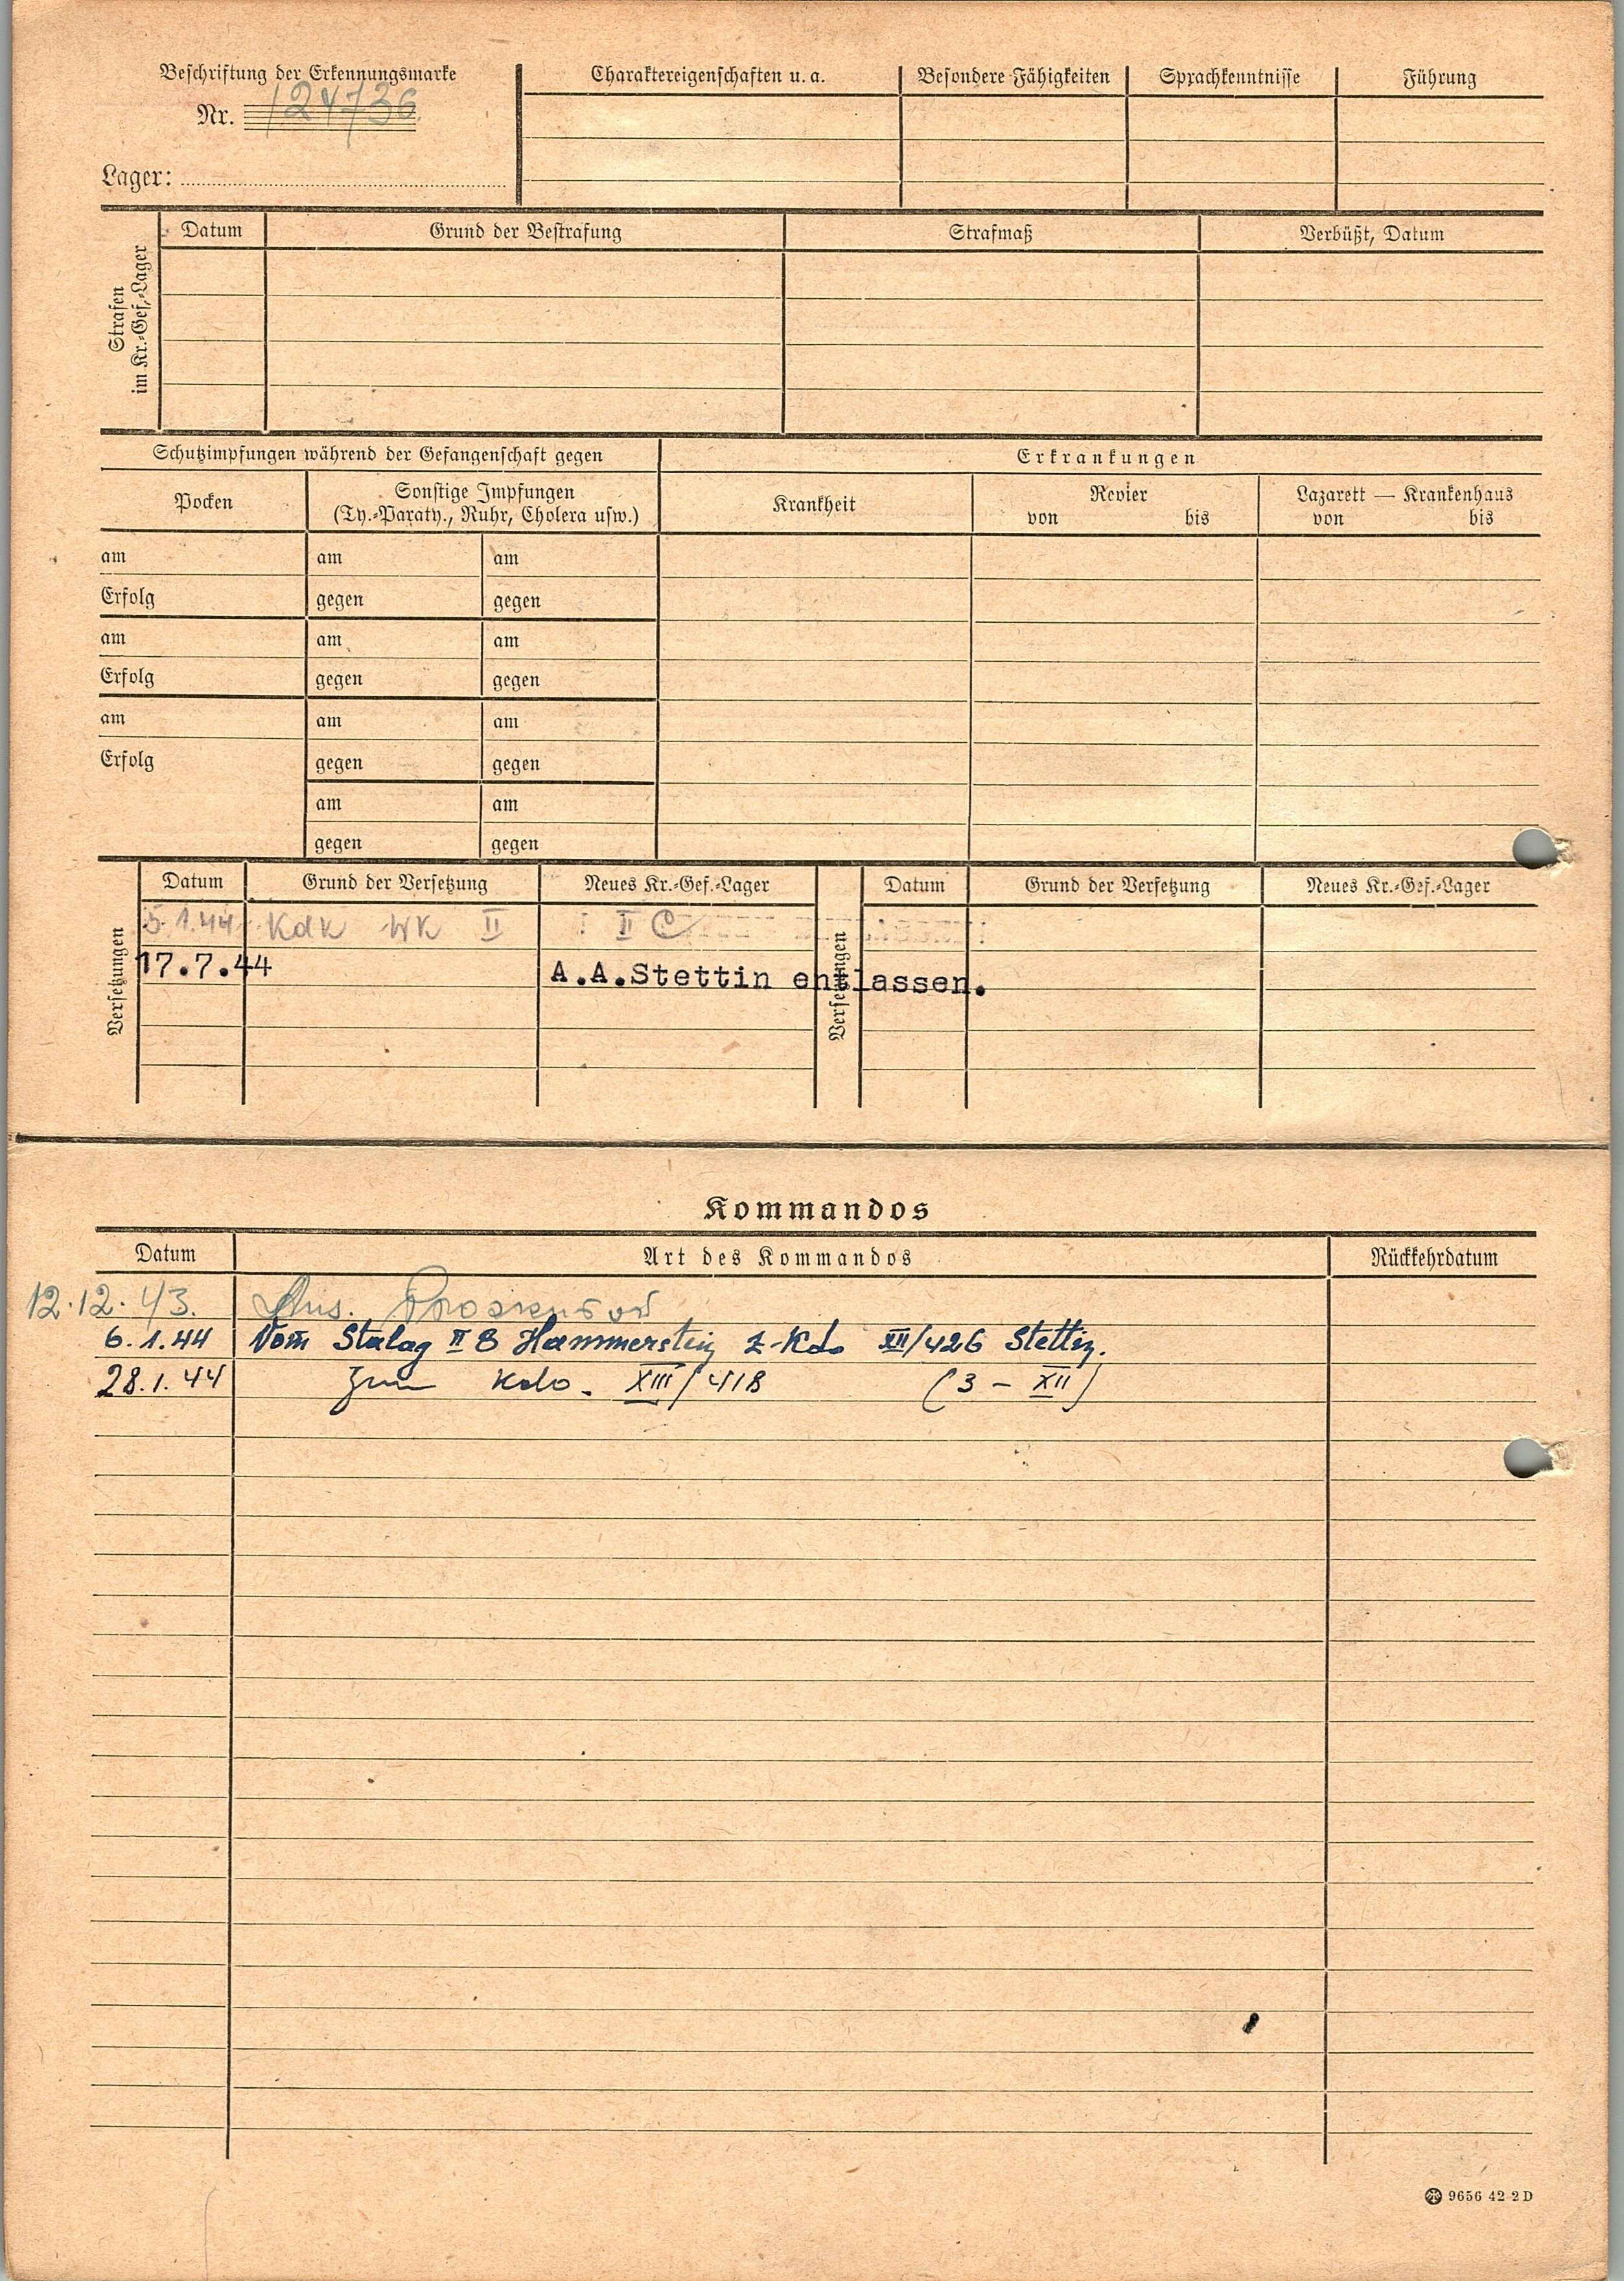 Beschriftung der Erkennungsmarke
Nr. 124736
Lager:
Charaktereigenschaften u. a. Besondere Fähigkeiten Sprachkenntnisse Führung
Strafen
im Kr.-Gef.-Lager
Datum Grund der Bestrafung Strafmaß Verbüßt, Datum
Schutzimpfungen während der Gefangenschaft gegen Erkrankungen
Pocken Sonstige Impfungen
(Ty.-Paraty., Ruhr, Cholera usw.) Krankheit Revier
von bis Lazarett — Krankenhaus
von bis
am am am
Erfolg gegen gegen
am am am
Erfolg gegen gegen
am am am
Erfolg gegen gegen
am am
gegen gegen
Versetzungen Datum Grund der Versetzung Neues Kr.-Gef.-Lager Versetzungen Datum Grund der Versetzung Neues Kr.-Gef.-Lager
5.1.44 Kdk WK II II C
17.7.44 A.A.Stettin entlassen.
Kommandos
Datum Art des Kommandos Rückkehrdatum
12.12.43.
6.1.44 Vom Stalag II B Hammerstein z. Kdo XII/426 Stettin.
28.1.44 Zum Kdo. XIII/418 (3 - XII)
9656 42 2 D